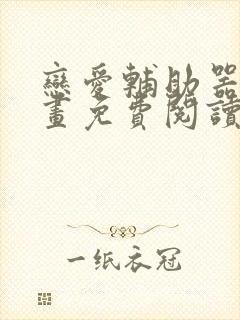 戀愛輔助器
畫免費閱讀
一纸衣冠